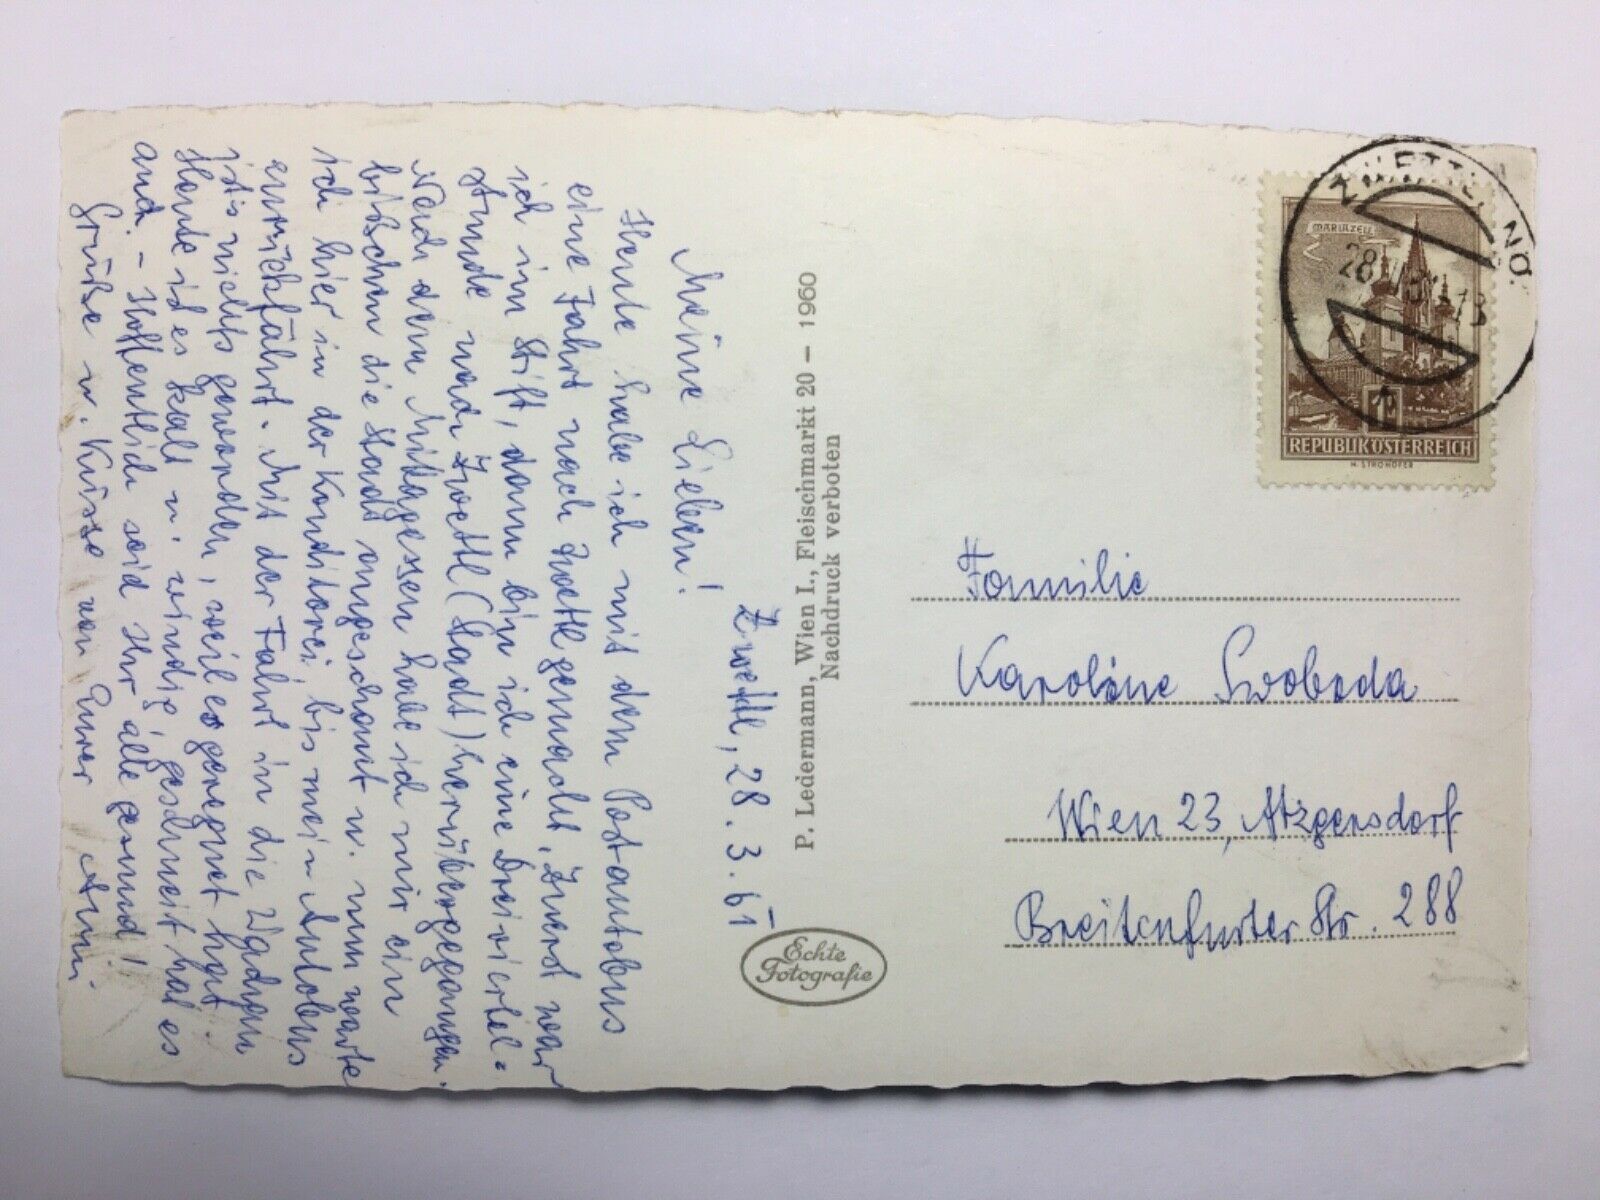 Zwettl, 28. 3. 61
Meine Lieben!
Heute habe ich mit dem Postautobus
eine Fahrt nach Zwettl gemacht. Zuerst war
ich im Stift, dann bin ich eine Dreiviertel-
stunde nach Zwettl (Stadt) herübergegangen.
Nach dem Mitagessen habe ich mir ein
bißchen die Stadt angeschaut u. nun warte
ich hier in der Konditorei, bis mein Autobus
zurückfährt. Mit der Fahrt in die
ist's nichts geworden, weil es geregnet hat.
Heute ist es kalt u. windig, geschneit hat es
auch. - Hoffentlich seid Ihr alle gesund!
Grüße u. Küsse von Eurer Anni
P. Ledermann, Wien I., Fleischmarkt 20 – 1960
Nachdruck verboten
Echte
Fotografie
ZWETTL, NÖ.
28. 13
MARIAZELL
1
REPUBLIK ÖSTERREICH
H. STROHOFER
Familie
Karoline Svoboda
Wien 23, Atzgersdorf
Breitenfurter Str. 288